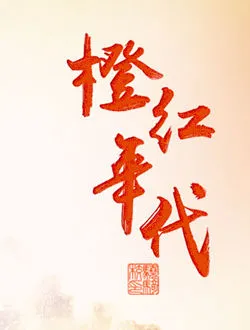 橙红年代